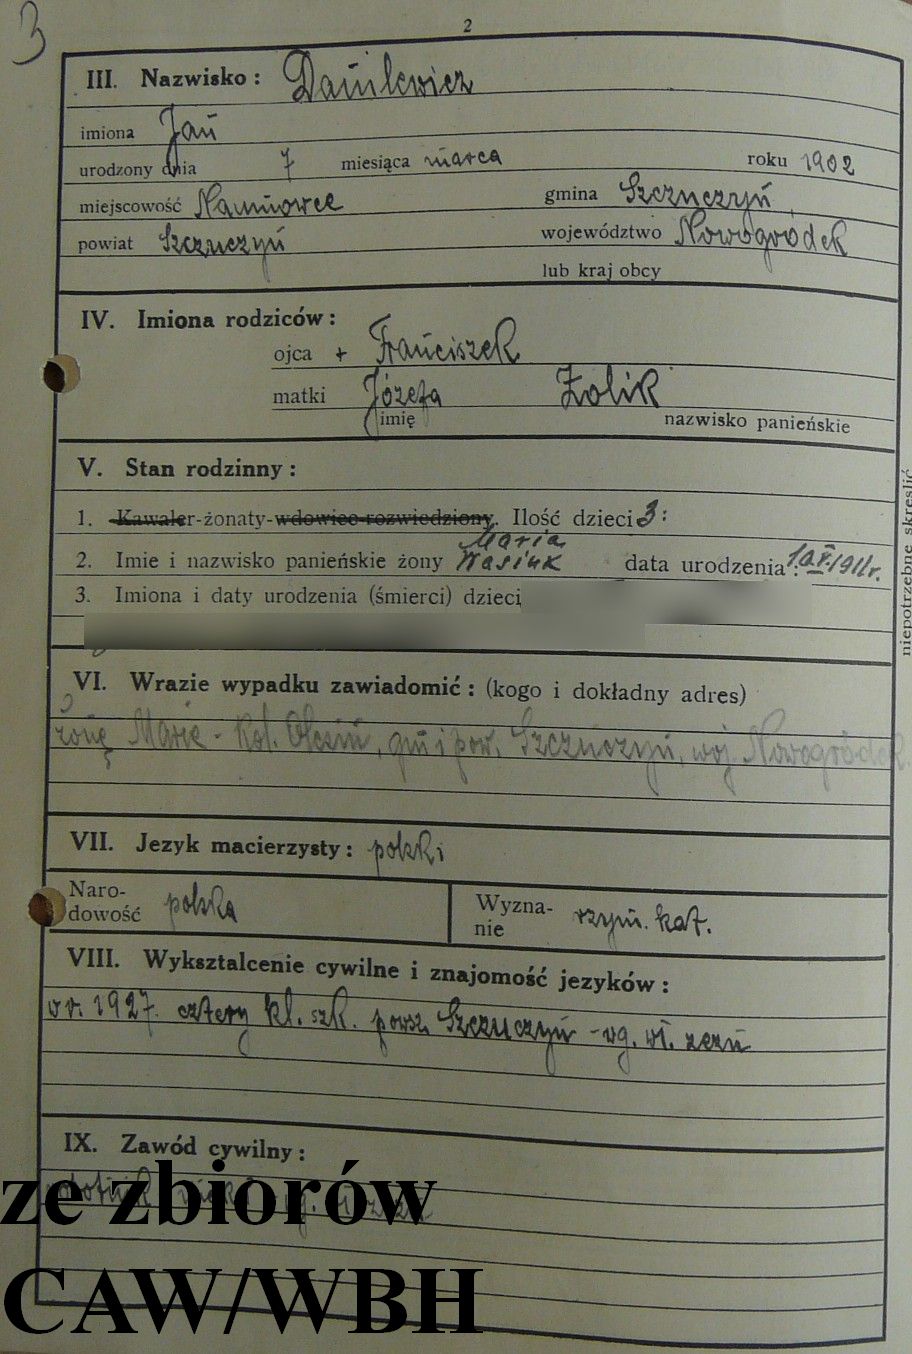 3
2
III. Nazwisko: Danilewicz
imiona Jan
urodzony dnia 7 miesiąca marca roku 1902
miejscowość gmina Szczuczyn
powiat Szczuczyn województwo Nowogródek
lub kraj obcy
IV. Imiona rodziców:
ojca + Franciszek
matki Józefa Żolik
imię nazwisko panieńskie
V. Stan rodzinny:
1. Kawaler-żonaty-wdowiec-rozwiedziony. Ilość dzieci 3:
Maria
2. Imie i nazwisko panieńskie żony Wasiuk data urodzenia: 1911r.
3. Imiona i daty urodzenia (śmierci) dzieci
niepotrzebne skreślić
VI. Wrazie wypadku zawiadomić: (kogo i dokładny adres)
żonę Marie - kol. gm i pow. Szczuczyn, woj. Nowogródek.
VII. Jezyk macierzysty: polski
Naro-
dowość polska
Wyzna-
nie rzym. kat.
VIII. Wyksztalcenie cywilne i znajomość jezyków:
w r. 1927. cztery kl. szk. powsz. Szczuczyn - wg. wł. zezn
IX. Zawód cywilny:
robotnik
ze zbiorów
CAW/WBH